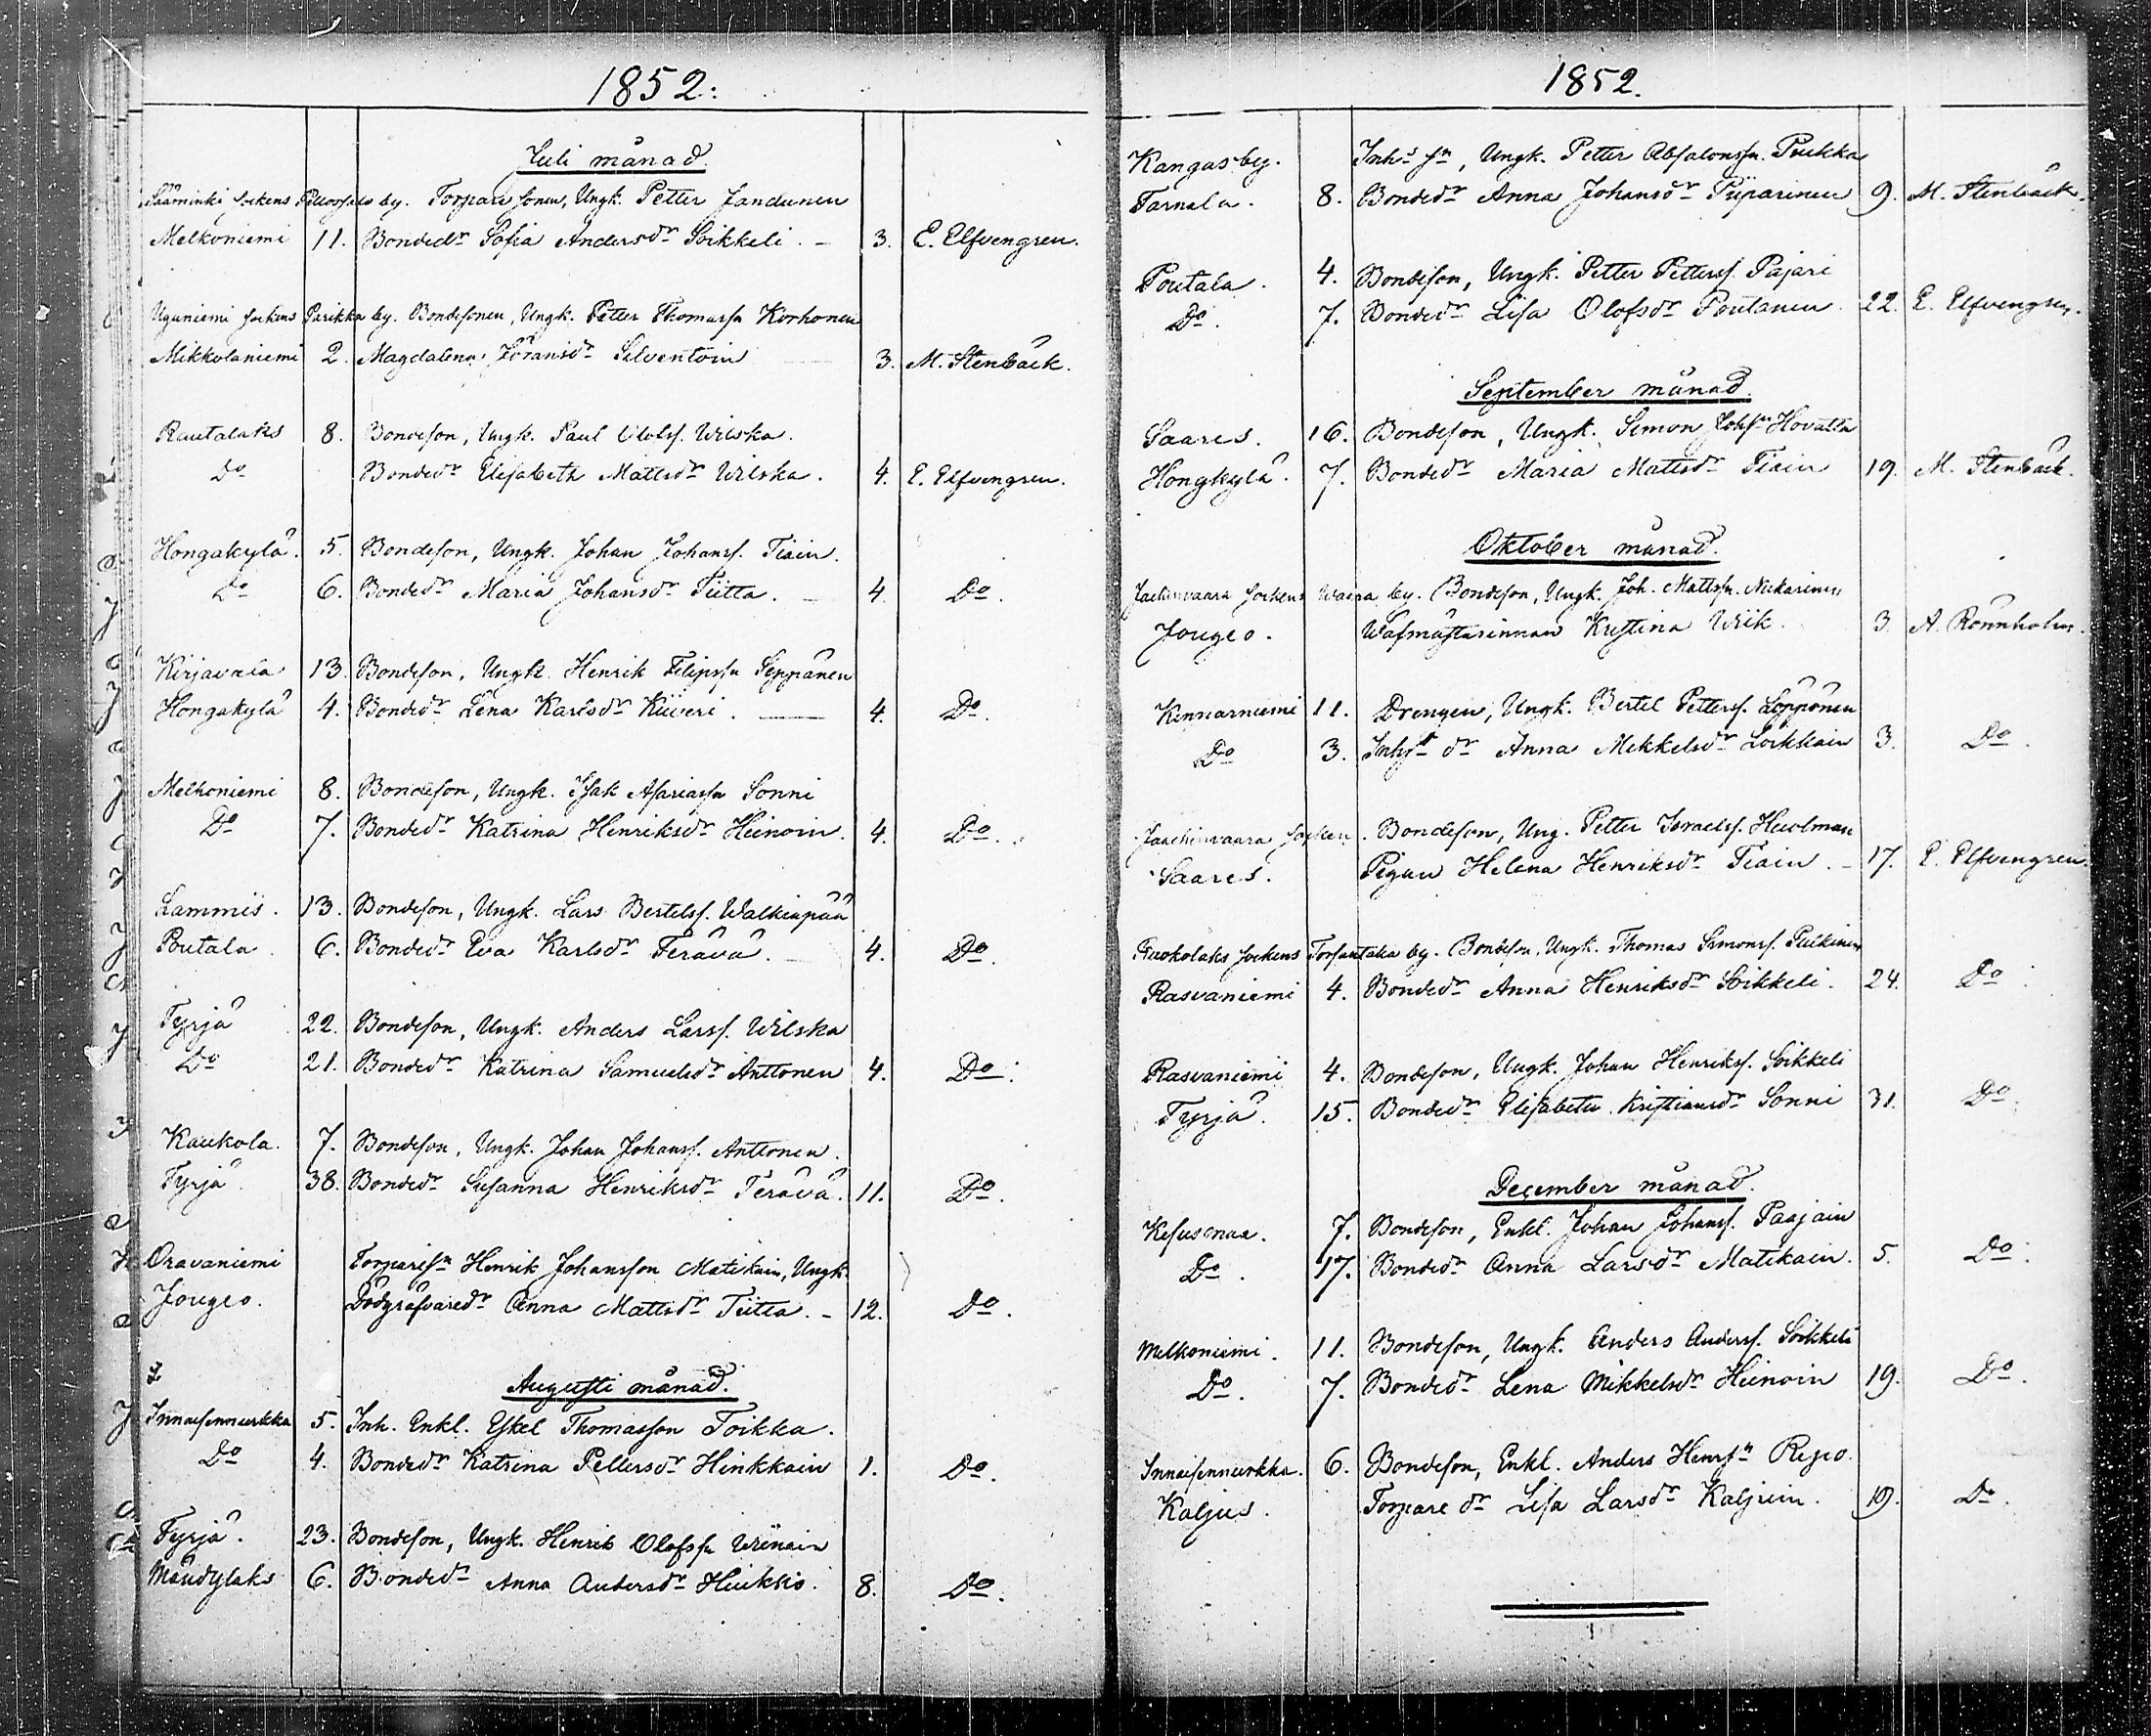 1852.
Juli månad.
Sääminki sockens by. Torpare sonen, Ungk. Petter Jandunen
Melkoniemi 11. Bondedr Sofia Andersdr Soikkeli. – 3. E. Elfvengren.
Uguniemi sockens Parikka by. Bondesonen, Ungk. Petter Thomassn Korhonen
Mikkolaniemi 2. Magdalena Göransdr Silventoin 3. M. Stenbäck.
Rautalaks 8. Bondeson, Ungk. Paul Olofss. Wilska.
Do Bondedr Elisabeth Mattsdr Wilska. 4. E. Elfvengren.
Hongakylä. 5. Bondeson, Ungk. Johan Johanss. Tiain.
Do 6. Bondedr Maria Johansdr Tiitta. – 4. Do.
Kirjavala 13. Bondeson, Ungk. Henrik Filipssn Seppänen
Hongakylä 4. Bondedr Lena Karlsdr Kiiveri. – 4. Do.
Melkoniemi 8. Bondeson, Ungk. Isak Asariassn Sonni
Do 7. Bondedr Katrina Henriksdr Heinoin. 4. Do.
Lammiis. 13. Bondeson, Ungk. Lars Bertelss. Walkiapää
Poutala 6. Bondedr Eva Karlsdr Terävä. – 4. Do.
Tyrjä 22. Bondeson, Ungk. Anders Larss. Wilska
Do 21. Bondedr Katrina Samuelsdr Anttonen 4. Do.
Kaukola. 7. Bondeson, Ungk. Johan Johanss. Anttonen.
Tyrjä 38. Bondedr Susanna Henriksdr Terävä. 11. Do.
Oravaniemi Torparesn Henrik Johansson Matikain, Ungk.
Jougio. Dödgräfvaredr Anna Mattsdr Tiitta. – 12. Do.
Augusti månad.
Innaisennurkka 5. Inh. Enkl. Eskel Thomasson Toikka.
Do 4. Bondedr Katrina Pettersdr Hinkkain 1. Do.
Tyrjä. 23. Bondeson, Ungk. Henrik Olofssn
6. Bondedr Anna Andersdr 8. Do.
1852.
Kangasby. Inhs sn, Ungk. Petter Absalonssn. Pukka
Tarnala. 8. Bondedr Anna Johansdr Piiparinen 9. M. Stenbäck.
Poutala. 4. Bondeson, Ungk. Petter Petterss. Pajari
Do. 7. Bondedr Lisa Olofsdr Poutanen. 22. E. Elfvengren.
September månad.
Saares. 16. Bondeson, Ungk. Simon Johsn Hovatta
Hongkylä. 7. Bondedr Maria Mattsdr Tiain 19. M. Stenbäck.
Oktober månad.
Jaakimvaara sockens by. Bondeson, Ungk. Joh. Mattssn.
Jougio. Wafmästarinnan Kristina Wiik. 3. A. Rönnholm.
Kinnarniemi 11. Drengen, Ungk. Bertel Petterss. Löppönen
Do 3. Inhs dr Anna Mikkelsdr Loikkain 3. Do.
Jaakimvaara socken. Bondeson, Ung. Petter Israelss.
Saares. Pigan Helena Henriksdr Tiain. – 17. E. Elfvengren.
Ruokolaks sockens Torsantaka by. Bondeson, Ungk. Thomas Simonss. Pulkinen
Rasvaniemi 4. Bondedr Anna Henriksdr Soikkeli. 24. Do
Rasvaniemi 4. Bondeson, Ungk. Johan Henrikss. Soikkeli
Tyrjä. 15. Bondedr Elisabeta Kristiansdr Sonni 31. Do.
December månad.
Kesusmaa. 7. Bondeson, Enkl. Johan Johanss. Paajain
Do. 17. Bondedr Anna Larsdr Matikain. 5. Do.
Melkoniemi. 11. Bondeson, Ungk. Anders Anderss. Soikkeli
Do. 7. Bondedr Lena Mikkelsdr Heinoin 19. Do.
Innaisennurkka. 6. Bondeson, Enkl. Anders Henrsn Repo.
Kaljus. Torpare dr Lisa Larsdr Kaljuin. 19. Do.